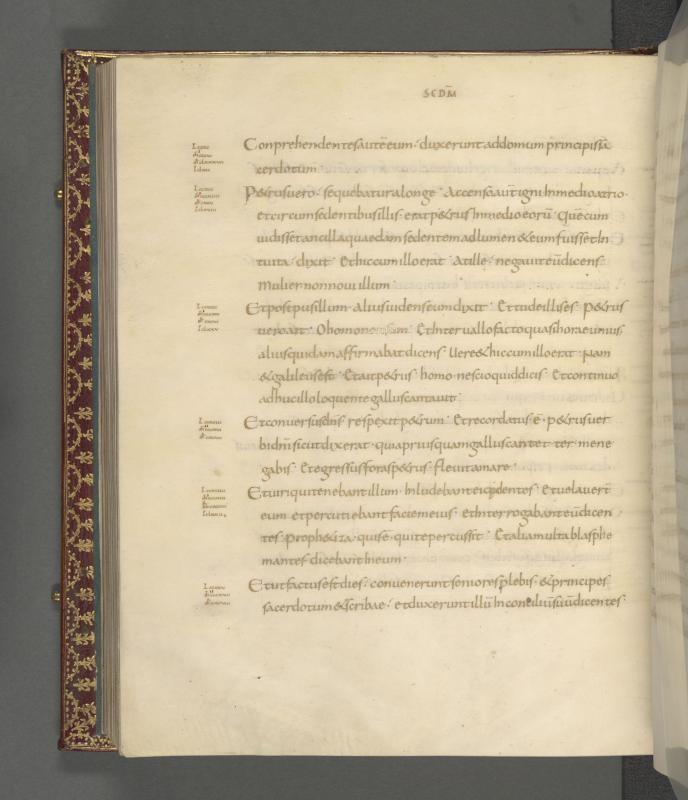 SCDM̄
Conprehendentes aut̄ eum · duxerunt ad domum principis sa
cerdotum ·
Petrus uero · sequebatur a longe · Accenso aut̄ igni In medio atrio ·
et circumsedentibus illis · erat petrus In medio eorū · Quē cum
uidisset ancilla quaedam sedentem ad lumen & eum fuisset In
tuita · dixit · Et hic cum illo erat · At ille · negauit eū dicens
Mulier non noui illum
Et post pusillum · alius uidens eum dixit · Et tu de illis es · Petrus
uero ait · O homo non sum · Et Interuallo facto quasi horae unius ·
alius quidam affirmabat dicens · Uere & hic cum illo erat · Nam
& galileus est · Et ait petrus · homo · nescio quid dicis · Et continuo
adhuc illo loquente gallus cantauit ·
Et conuersus dn̄s · respexit petrum · Et recordatus ē · petrus uer
bi dn̄i sicut dixerat · quia priusquam gallus cantet · ter · me ne
gabis · Et egressus foras petrus · fleuit amare ·
Et uiri qui tenebant illum · Inludebant ei cędentes · Et uelauert̄
eum · et percutiebant faciem eius · et Interrogabant eū dicen
tes · Prophetiza · quis ē · qui te percussit · Et alia multa blasphe
mantes dicebant In eum ·
Et ut factus est dies · conuenerunt seniores plebis · & principes
sacerdotum & scribae · et duxerunt illū In concilium suū dicentes ·